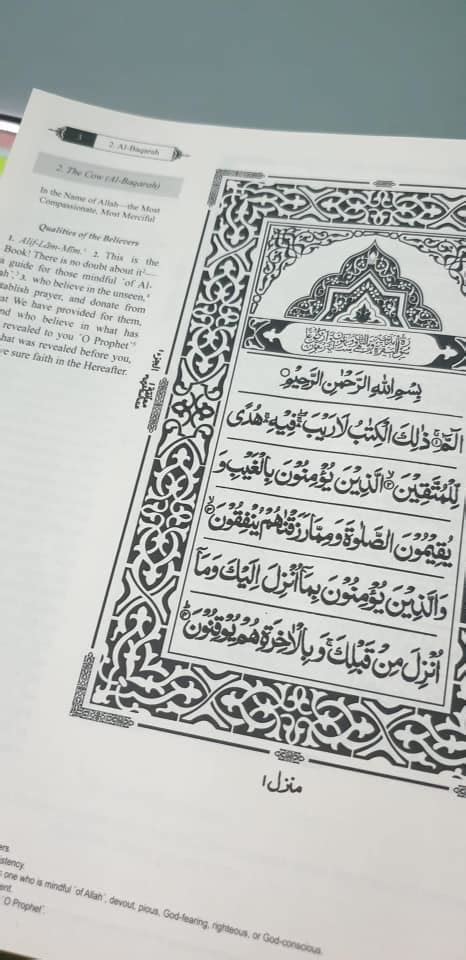 3
2. Al-Baqarah
2. The Cow (Al-Baqarah)
In the Name of Allah—the Most
Compassionate, Most Merciful
Qualities of the Believers
1. Alif-Lãm-Mĩm. 2. This is the
Book! There is no doubt about it—
a guide for those mindful ˹of Al-
ah˺, 3. who believe in the unseen,
tablish prayer, and donate from
at We have provided for them,
nd who believe in what has
revealed to you ˹O Prophet˺
hat was revealed before you,
ve sure faith in the Hereafter.
بِسْمِ اللهِ الرَّحْمٰنِ الرَّحِيْمِ
الٓمّٓ ۚ ذٰلِكَ الْكِتٰبُ لَا رَيْبَ ۛ فِيْهِ ۛ هُدًى
لِّلْمُتَّقِيْنَ ۙ الَّذِيْنَ يُؤْمِنُوْنَ بِالْغَيْبِ وَ
يُقِيْمُوْنَ الصَّلٰوةَ وَمِمَّا رَزَقْنٰهُمْ يُنْفِقُوْنَ ۙ
وَالَّذِيْنَ يُؤْمِنُوْنَ بِمَآ اُنْزِلَ اِلَيْكَ وَمَآ
اُنْزِلَ مِنْ قَبْلِكَ ۚ وَبِالْاٰخِرَةِ هُمْ يُوْقِنُوْنَ ؕ
منزل ۱
ers
istency.
s one who is mindful ˹of Allah˺, devout, pious, God-fearing, righteous, or God-conscious.
ent.
˹O Prophet˺.